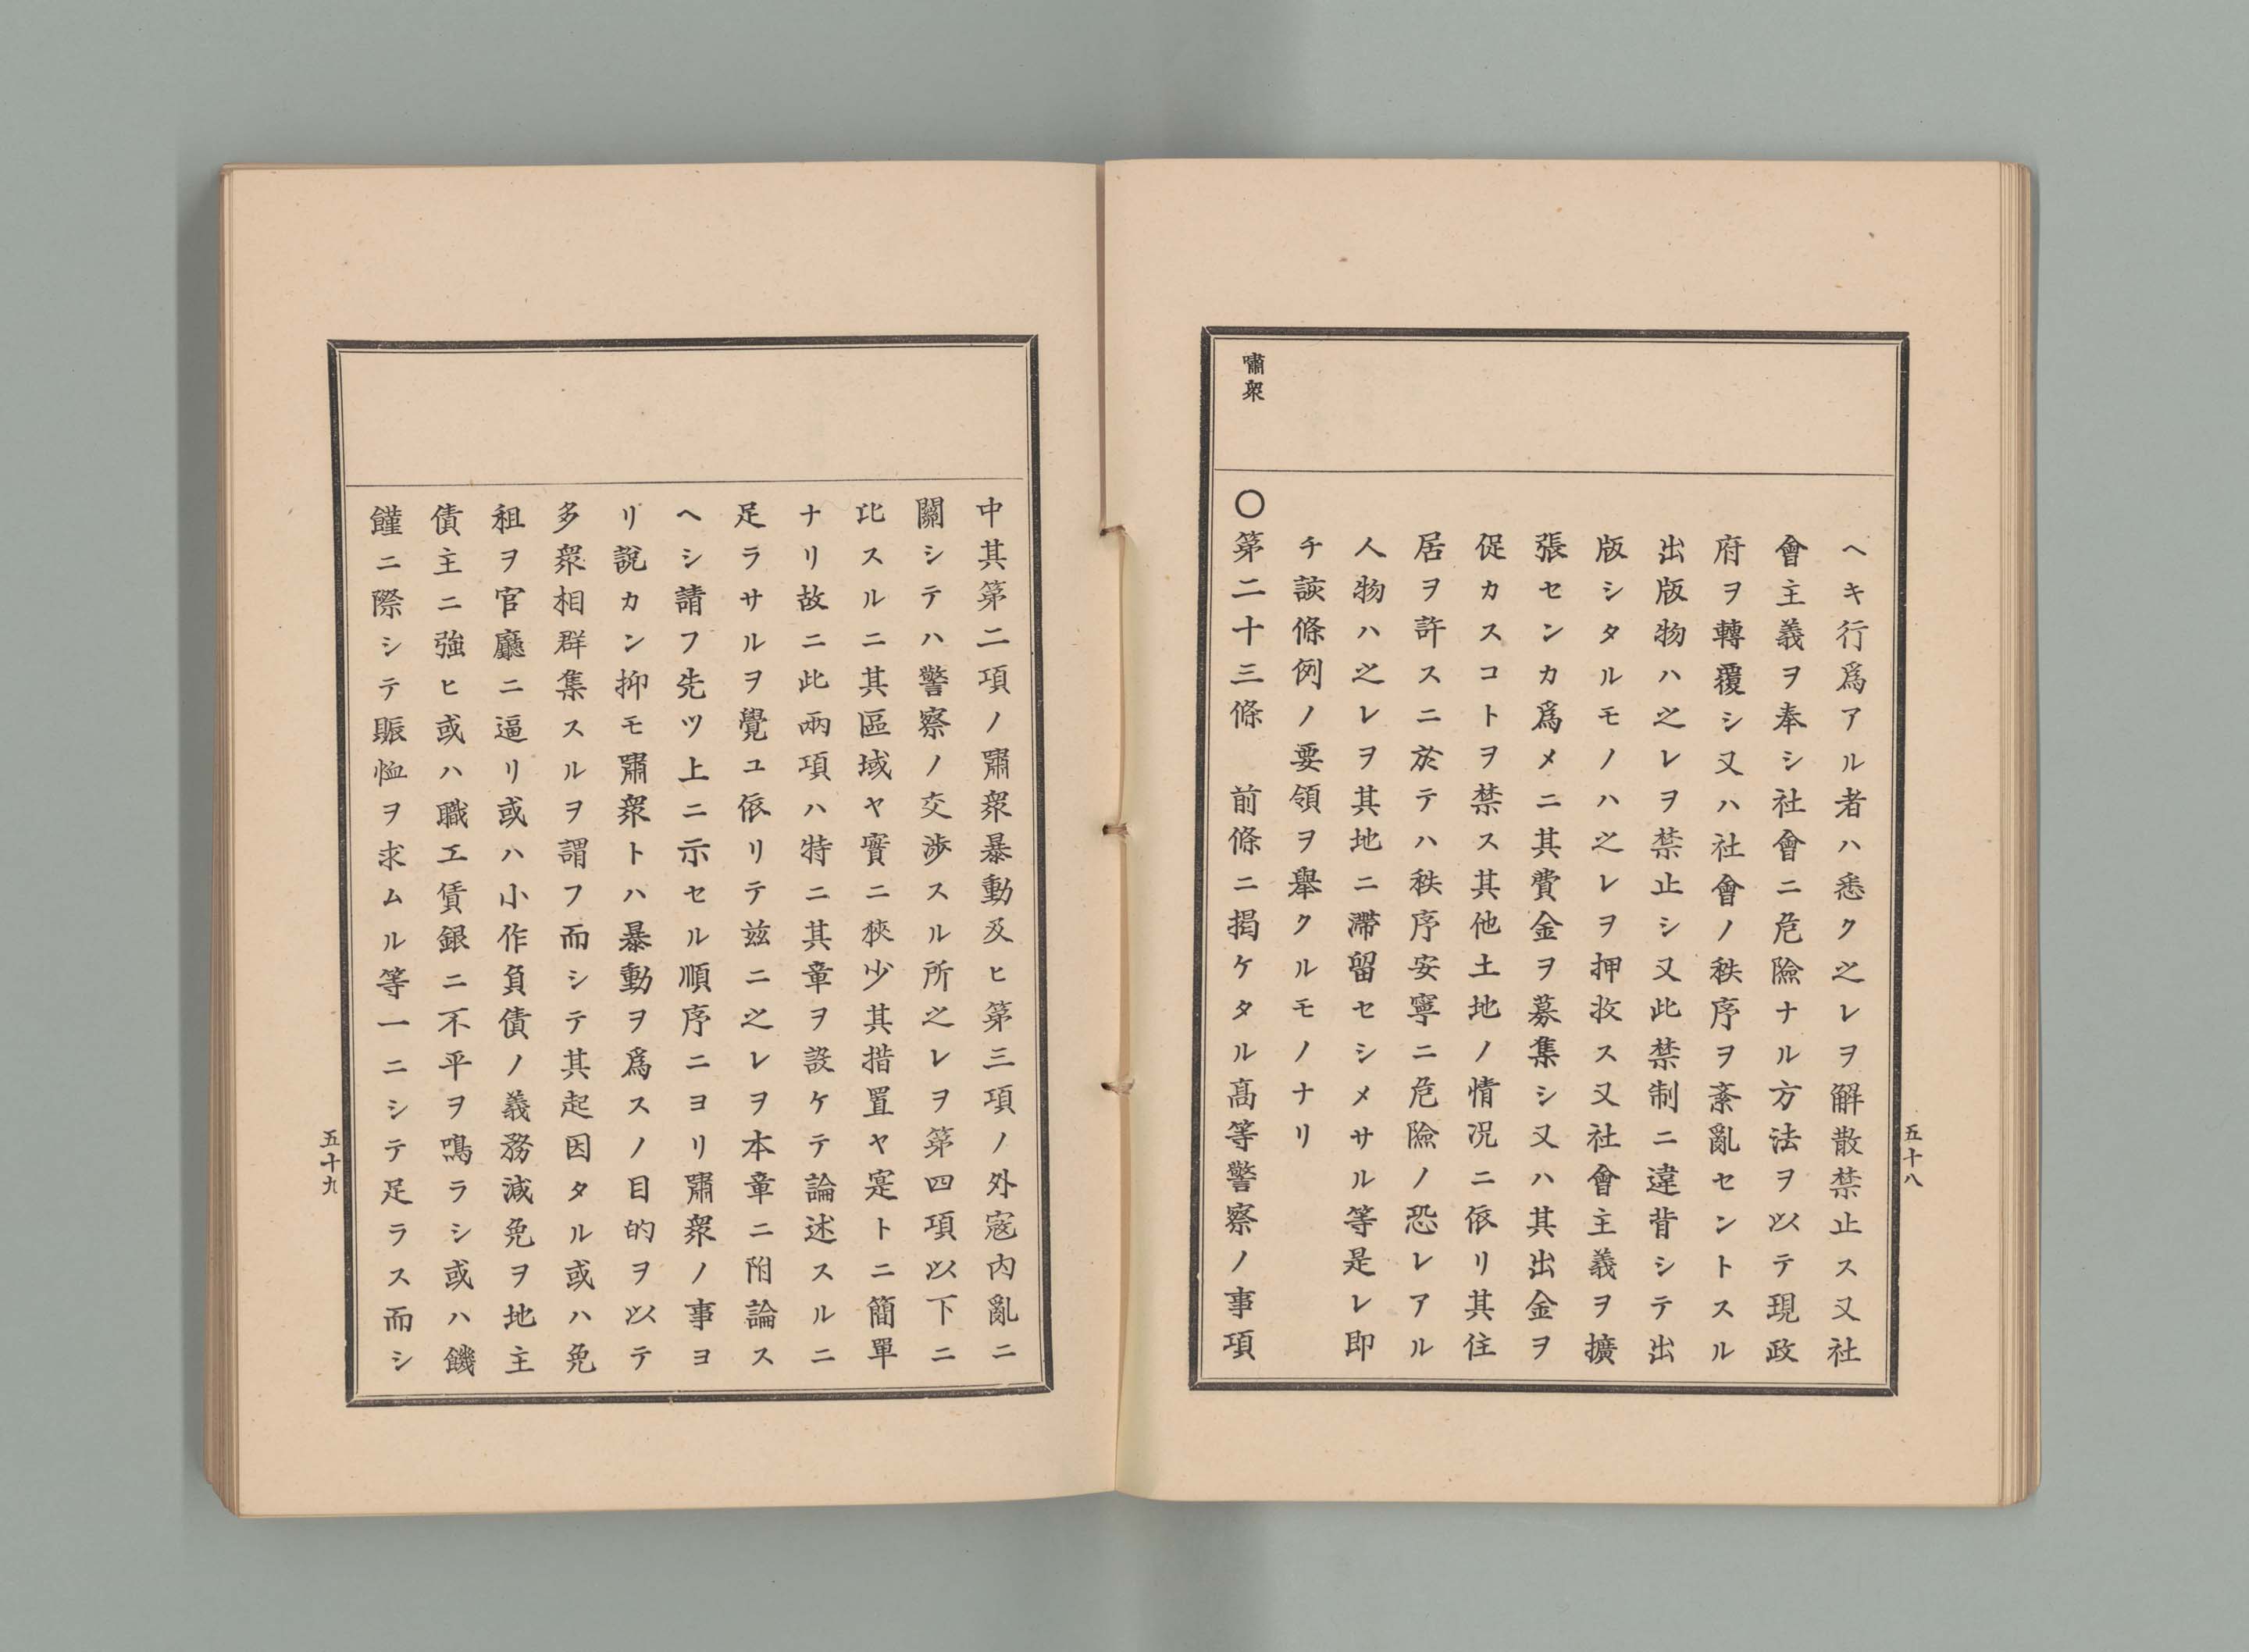 五十八
ヘキ行爲アル者ハ悉ク之レヲ解散禁止ス又社
會主義ヲ奉シ社會ニ危險ナル方法ヲ以テ現政
府ヲ轉覆シ又ハ社會ノ秩序ヲ紊亂セントスル
出版物ハ之レヲ禁止シ又此禁制ニ違背シテ出
版シタルモノハ之レヲ押收ス又社會主義ヲ擴
張センカ爲メニ其費金ヲ募集シ又ハ其出金ヲ
促カスコトヲ禁ス其他土地ノ情况ニ依リ其住
居ヲ許スニ於テハ秩序安寧ニ危險ノ恐レアル
人物ハ之レヲ其地ニ滯留セシメサル等是レ即
チ該條例ノ要領ヲ舉クルモノナリ
嘯衆
〇第二十三條　前條ニ揭ケタル髙等警察ノ事項
中其第二項ノ嘯衆暴動及ヒ第三項ノ外寇内亂ニ
關シテハ警察ノ交渉スル所之レヲ第四項以下ニ
比スルニ其區域ヤ實ニ狹少其措置ヤ寔トニ簡單
ナリ故ニ此兩項ハ特ニ其章ヲ設ケテ論述スルニ
足ラサルヲ覺ユ依リテ茲ニ之レヲ本章ニ附論ス
ヘシ請フ先ツ上ニ示セル順序ニヨリ嘯衆ノ事ヨ
リ說カン抑モ嘯衆トハ暴動ヲ爲スノ目的ヲ以テ
多衆相群集スルヲ謂フ而シテ其起因タル或ハ免
租ヲ官廳ニ逼リ或ハ小作負債ノ義務減免ヲ地主
債主ニ強ヒ或ハ職工賃銀ニ不平ヲ鳴ラシ或ハ饑
饉ニ際シテ賑恤ヲ求ムル等一ニシテ足ラス而シ
五十九